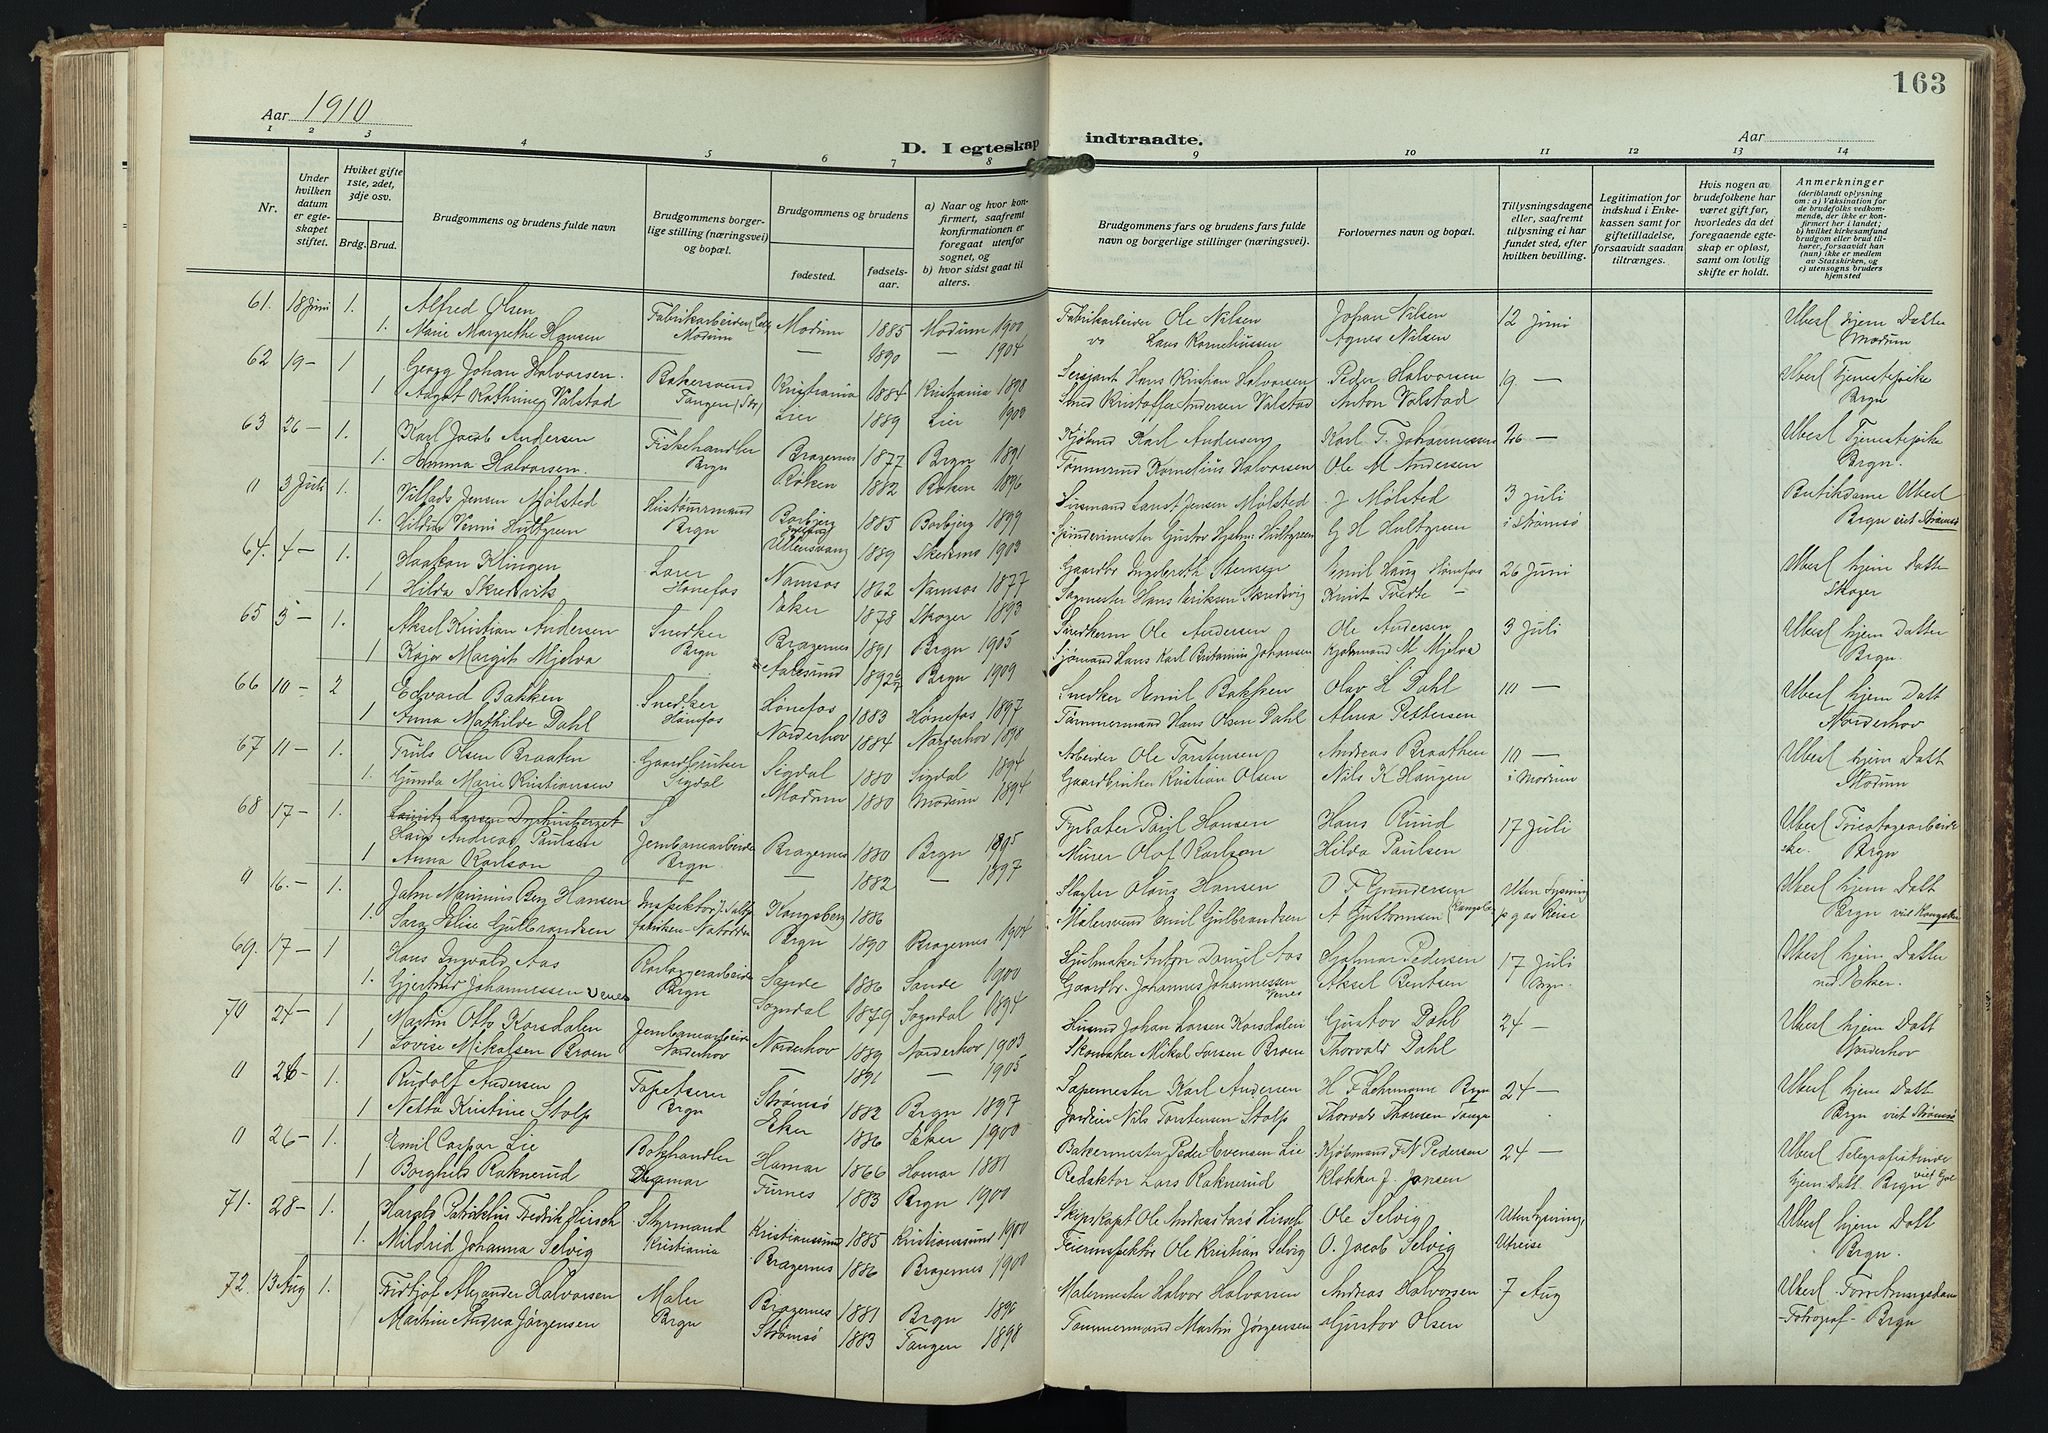 163
Aar 1910
D. I egteskap indtraadte.
Aar
1 2 3 4 5 6 7 8 9 10 11 12 13 14
Nr.
Under hvilken datum er egteskapet stiftet.
Hviket gifte 1ste, 2det, 3dje osv.
Brdg. Brud.
Brudgommens og brudens fulde navn
Brudgommens borgerlige stilling (næringsvei) og bopæl.
Brudgommens og brudens
fødested.
fødselsaar.
a) Naar og hvor konfirmert, saafremt konfirmationen er foregaat utenfor sognet, og
b) hvor sidst gaat til alters.
Brudgommens fars og brudens fars fulde navn og borgerlige stillinger (næringsvei).
Forlovernes navn og bopæl.
Tillysningsdagene eller, saafremt tillysning ei har fundet sted, efter hvilken bevilling.
Legitimation for indskud i Enkekassen samt for giftetilladelse, forsaavidt saadan tiltrænges.
Hvis nogen av brudefolkene har været gift før, hvorledes da det foregaaende egteskap er opløst, samt om lovlig skifte er holdt.
Anmerkninger
(deriblandt oplysning om: a) Vaksination for de brudefolks vedkommende, der ikke er konfirmert her i landet; b) hvilket kirkesamfund brudgom eller brud tilhører, forsaavidt han (hun) ikke er medlem av Statskirken, og c) utensogns bruders hjemsted
61. 18 Juni 1. Alfred Olsen Fabrikarbeider Modum 1885 Modum 1900 Fabrikarbeider Ole Nilsen Johan Nilsen 12 Juni Ubesl hjem Datter
1. Marie Margrethe Hansen Modum — 1890 — 1904 Hans Korneliussen Agnes Nilsen Modum
62 19 — 1 Georg Johan Halvorsen. Bakersvend Kristiania 1884 Kristiania 1898 Sersjant Hans Kristian Halvorsen Peder Halvorsen 19 — Ubesl Tjenestepike
1 Aagot Kathrine Valstad Tangen Lier 1889 Lier 1903 Smed Kristoffer Andersen Valstad Anton Valstad Brgn
63 26 — 1. Karl Jacob Andersen Fiskehandler Bragernes 1877 Brgn 1891 Kjøbmd Karl Andersen Karl T. Johannessen 26 — Ubesl Tjenestepike
1. Emma Halvorsen. Brgn Røken 1882 Røken 1896 Tømmermd Kornelius Halvorsen Ole M Andersen Brgn.
0 3 Juli 1. Vilfads Jensen Mølsted Borbjerg 1885 Borbjerg 1899 J Mølsted 3 Juli Butikdame Ubesl
1. Hilda Venni Hultgreen Brgn Gustav Hjalm. Hultgreen G H Hultgreen i Strømsø Brgn viet Strømsø
64. 4 — 1. Haakon Klingen Namsos 1862 Namsos 1877 Gaardbr Ingebrcth Stensen Emil Haug Hønefos 26 Juni Ubesl hjem Datter
1 Hilda Skredsvik Hønefos Eker 1878 Skoger 1893 Sagmester Hans Eriksen Skredsvig Knut Tveste — Skoger
65 3 — 1. Aksel Kristian Andersen Snedker Bragernes 1891 Brgn 1905 Snedkerm Ole Andersen Ole Andersen 3 Juli Ubesl hjem Datter
1 Kaja Margit Mjelva Brgn Aalesund 1892 Brgn 1909 Sjømand Hans Karl Johansen Kjøbmand M Mjelva Brgn.
66 10 — 2 Edvard Bakken Snedker Hønefos 1883 Hønefos 1897 Snedker Emil Bakken Olav H Dahl 10 — Ubesl hjem Datt
1 Anna Mathilde Dahl Hønefos Norderhov 1884 Norderhov 1898 Tømmermand Hans Olsen Dahl Alma Pettersen Norderhov
67 11 — 1. Truls Olsen Braaten Gaardbruker Sigdal 1880 Sigdal 1894 Arbeider Ole Torstensen Andreas Braathen 10 — Ubesl hjem Datt
1. Gunda Marie Kristiansen Sigdal Modum 1880 Modum 1894 Gaardbruker Kristian Olsen Nils K Haugen i Modum Modum
68 17 — 1. Hans Andreas Paulsen Jernbanearbeider Bragernes 1880 Brgn 1895 Fyrbøter Paul Hansen Hans Ruud 17 Juli Ubesl Tricotagearbeider
1 Anna Karlson Brgn. — 1882 — 1897 Murer Olof Karlson Hilda Paulsen ske. Brgn
0 16. — 1. Jahn Marinius Berg Hansen Inspektør Kongsberg 1886 Slagter Olaus Hansen O F Gundersen Uten lysning Ubesl hjem Datt
1. Sara Elise Gulbrandsen fabriken Notodden Brgn 1890 Bragernes 1904 Malersvend Emil Gulbrandsen A Guttormsen p g av Reise Brgn viet Kongsber
69. 17 — 1 Hans Ingvald Aas Brgn Sande 1886 Sande 1900 Hjulmaker Anton Daniel Aas Hjalmar Pedersen 17 Juli Ubesl hjem Datter
1. Gjertrud Johannessen Venes Sogndal 1879 Sogndal 1894 Gaardbr. Johannes Johannessen Venes Aksel Bentsen Brgn. ned. Eker.
70 24 — 1 Martin Otto Korsdalen Jernbanearbeider Norderhov 1889 Norderhov 1903 Johan Larsen Korsdalen Gustav Dahl 24 — Ubesl hjem Datt
1 Lovise Mikalsen Broen Norderhov — 1891 — 1905 Skomaker Mikal Larsen Broen Thorvald Dahl Norderhov
0 26 — 1. Rudolf Andersen Tapetserer Strømsø 1882 Brgn 1897 Sæpemester Karl Andersen H F Lehrmann Brgn 24 — Ubesl hjem Datt
1 Netta Kristine Stolp Brgn Eker 1886 Eker 1900 Jordeier Nils Torstensen Stolp Thorvald Thorsen Tange Brgn viet Strømsø
0 26 — 1. Emil Caspar Lie Bokhandler Hamar 1866 Hamar 1881 Bakermester Peder Evensen Lie Kjøbmand F N Pedersen 24 — Ubesl Telegrafistinde
1 Borghild Raknerud Hamar Furnes 1883 Brgn 1900 Redaktør Lars Raknerud Klokker J. Jansen hjem. Datt. Brgn viet Gol
71. 28 — 1. Harald Fredrik Hirsch Styrmand Kristianssund 1885 Kristianssund 1900 Skipskapt Ole Andreas Hirsch Ole Selvig Uten lysning Ubesl hjem Datt
1. Mildrid Johanna Selvig Kristiania Bragernes 1886 Bragernes 1900 Feierinspektør Ole Kristian Selvig O. Jacob Selvig Utreise Brgn.
72. 13 Aug 1. Fridtjof Alexander Halvorsen Maler Bragernes 1881 Brgn Malermester Halvor Halvorsen Andreas Halvorsen 7 Aug Ubesl. Forretningsdam
Martine Andrea Jørgensen Brgn Strømsø 1883 Tangen 1898 Tømmermand Martin Jørgensen Gustav Olsen -Fotograf- Brgn